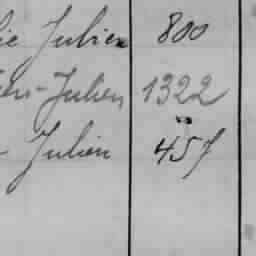 Julien 800
Julien 1322
Julien 457